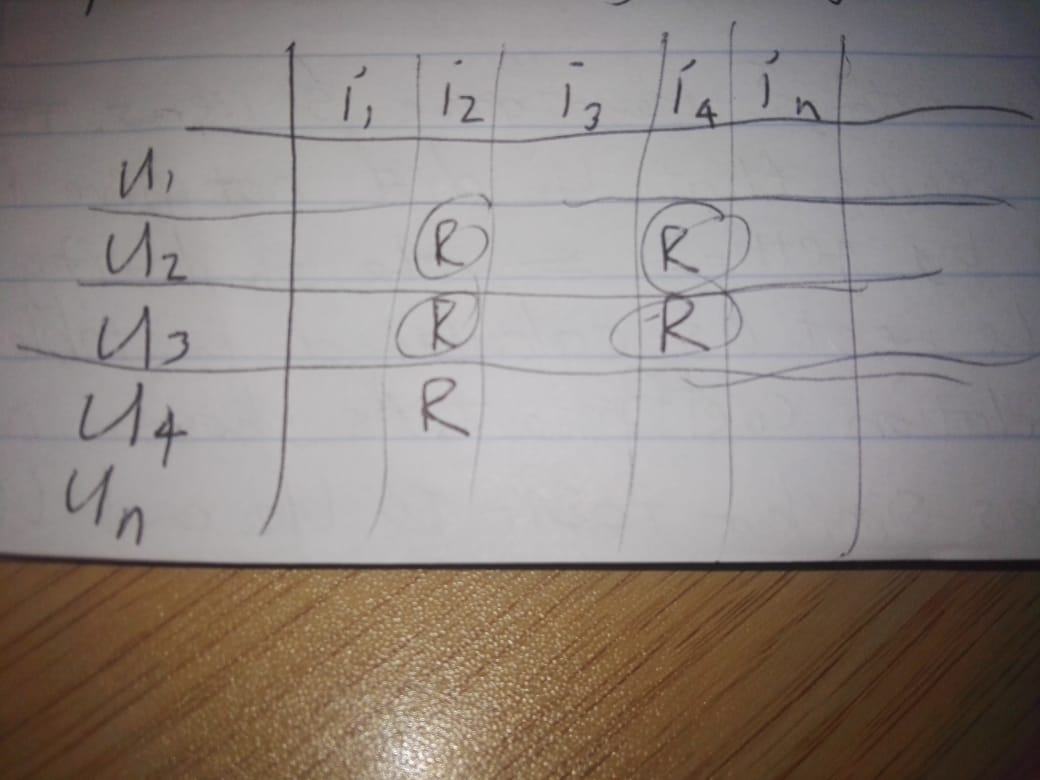 i₁ i₂ i₃ i₄ iₙ
u₁
u₂ R R
u₃ R R
u₄ R
uₙ